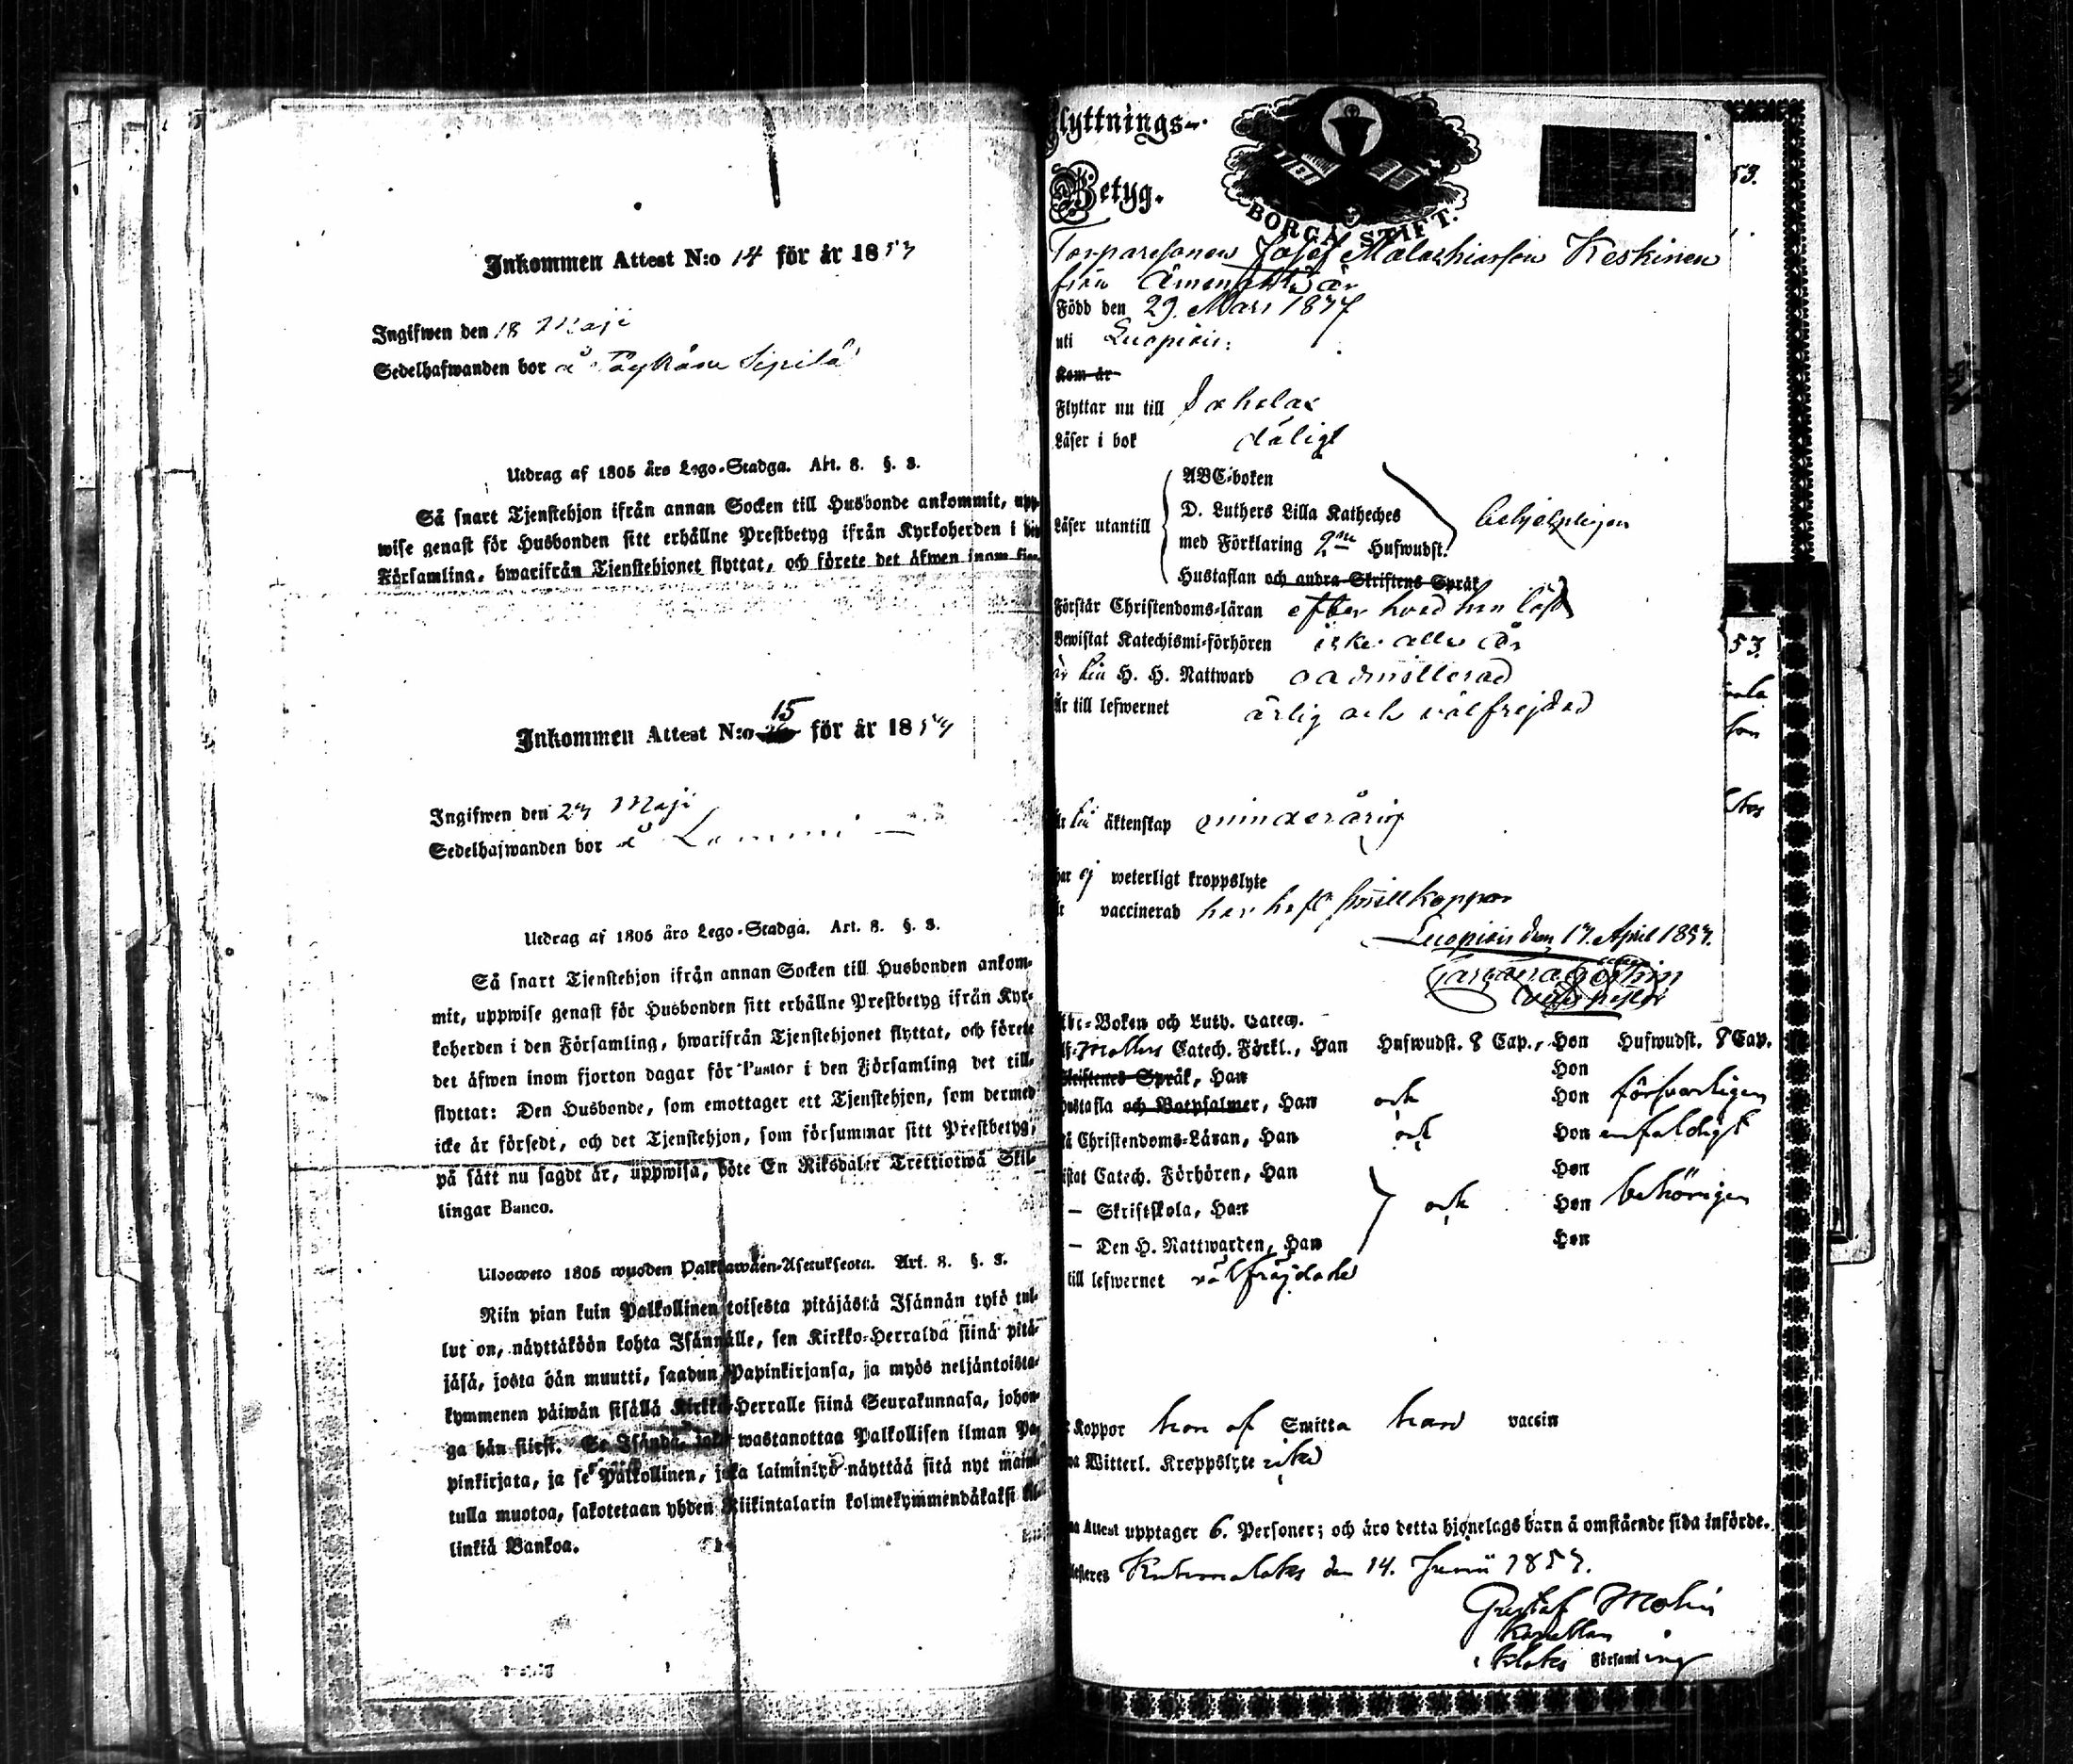 Inkommen Attest N:o 14 för år 1857
Ingifwen den 18 Maji
Sedelhafwanden bor å
Utdrag af 1805 års Lego-Stadga. Art. 8. §. 3.
Så snart Tjenstehjon ifrån annan Socken till Husbonde ankommit, upp-
wise genast för Husbonden sitt erhållne Prestbetyg ifrån Kyrkoherden i den
Församling, hwarifrån Tjenstehjonet flyttat, och förete det äfwen inom
Inkommen Attest N:o 15 för år 1857
Ingifwen den 27 Maji
Sedelhafwanden bor å Lammi
Utdrag af 1805 års Lego-Stadga. Art. 8. §. 3.
Så snart Tjenstehjon ifrån annan Socken till Husbonden ankom-
mit, uppwise genast för Husbonden sitt erhållne Prestbetyg ifrån Kyr-
koherden i den Församling, hwarifrån Tjenstehjonet flyttat, och förete
det äfwen inom fjorton dagar för Pastor i den Församling det till-
flyttat: Den Husbonde, som emottager ett Tjenstehjon, som dermed
icke är försedt, och det Tjenstehjon, som försummar sitt Prestbetyg,
på sätt nu sagdt är, uppwisa, böte En Riksdaler Trettiotwå Skil-
lingar Banco.
Ulosweto 1805 wuoden Palkkawäen-Asetuksesta. Art. 8. §. 3.
Niin pian kuin Palkollinen toisesta pitäjästä Isännän tykö tul-
lut on, näyttäköön kohta Isännälle, sen Kirkko-Herralda siinä pitä-
jäsä, josta hän muutti, saadun Papinkirjansa, ja myös neljäntoista-
kymmenen päiwän sisällä Kirkko-Herralle siinä Seurakunnasa, johon-
ga hän siirst. Se Isändä, joka wastanottaa Palkollisen ilman Pa-
pinkirjata, ja se Palkollinen, joka laiminlyö näyttää sitä nyt maini-
tulla muotoa, sakotetaan yhden Riikintalarin kolmekymmendäkaksi kil-
linkiä Bankoa.
Flyttnings-
Betyg.
BORGÅ STIFT.
Torparesonen Josef Malachiasson Keskinen
från
Född den 29. Mars 1837
uti Luopiois.
Kom år
Flyttar nu till
Läser i bok dåligt
ABC-boken
D. Luthers Lilla Katheches
Läser utantill
behjelpligen
med Förklaring 2 Hufwudst.
Hustaflan och andra Skriftens Språk
Förstår Christendoms-läran efter hvad han läst
Bewistat Katechismi-förhören icke alla år
är till H. H. Nattward oadmitterad
Är till lefwernet ärlig och välfrejdad
är till äktenskap minderårig
har ej weterligt kroppslyte
är vaccinerad har haft smittkoppor
Luopiois den 17. April 1857.
Abc-Boken och Luth. Catech.
Catech. Förkl., Han Hufwudst. 8 Cap., Hon Hufwudst. 8 Cap.
Skriftenes Språk, Han Hon
Hustafla och Botpsalmer, Han och Hon försvarligen
Christendoms-Läran, Han och Hon enfaldigt
Catech. Förhören, Han Hon
— Skriftskola, Han och Hon behörigen
— Den H. Nattwarden, Han Hon
till lefwernet välfrejdade
Koppor hon af Smitta han vaccin
Witterl. Kroppslyte icke
Attest upptager 6. Personer; och äro detta hjonelags barn å omstående sida införde.
den 14. Junii 1857.
Gustaf Molin
Kapellan
Församling
53.
53.